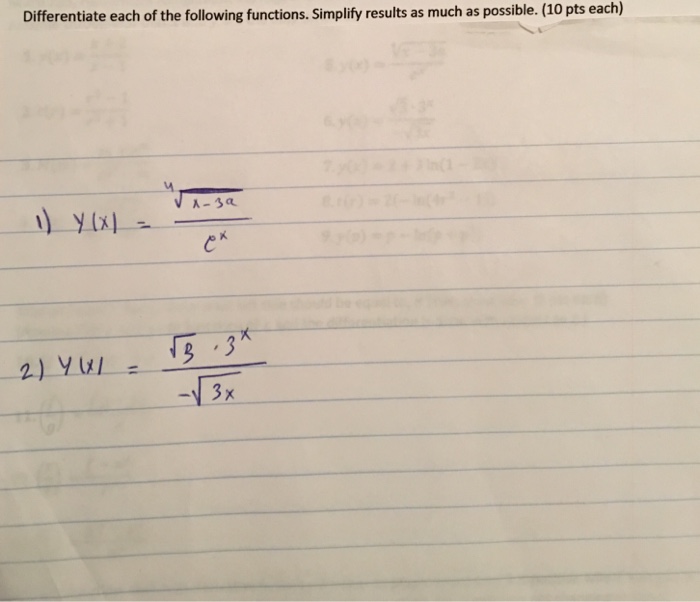 Differentiate each of the following functions. Simplify results as much as possible. (10 pts each)
1) y(x) = ∜(x-3a) / e^x
2) y(x) = √3 · 3^x / -√3x